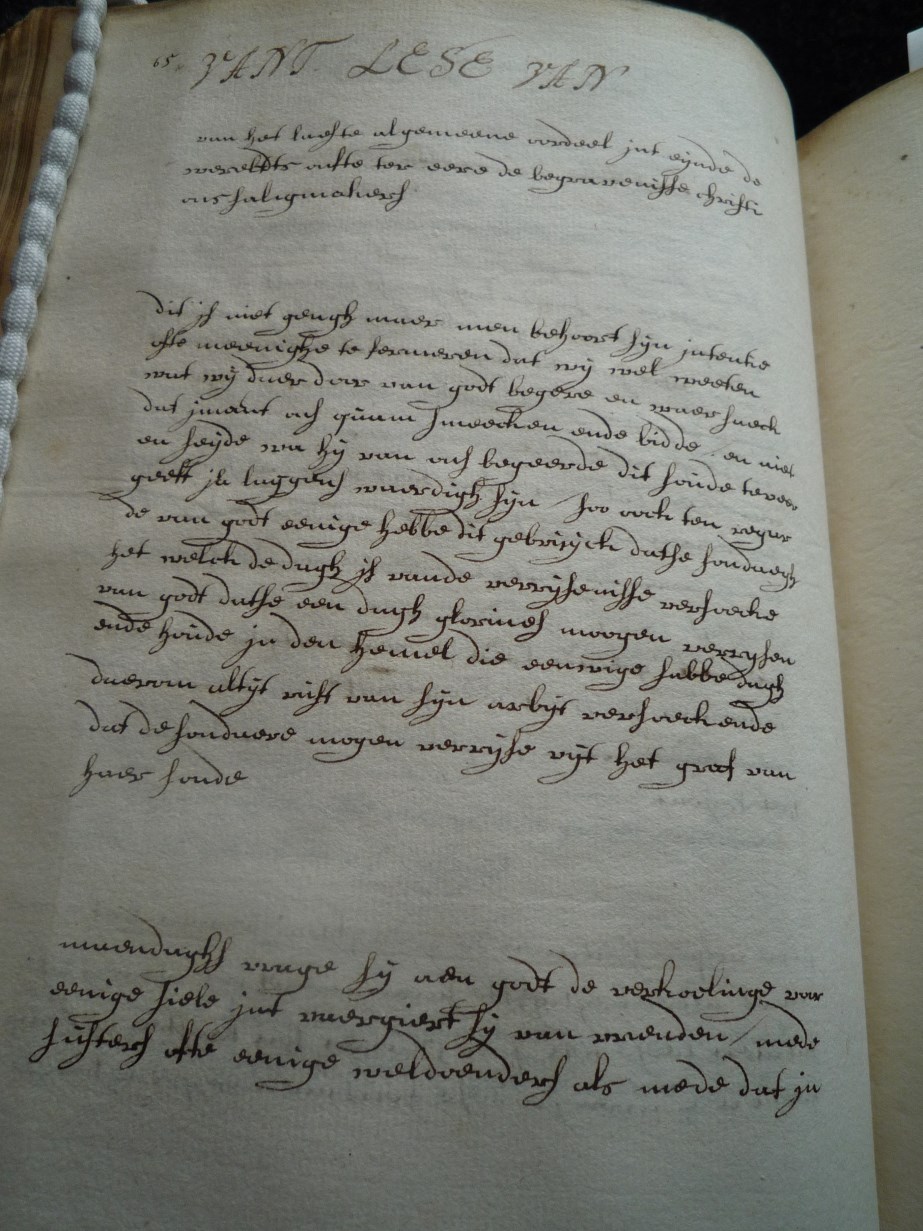 65. VANT LESE VAN
van het laeste algemeene oordeel int eynde de
wereldts ofte ter eere de begravenisse christi
ons saligmakers
dit is niet genogh maer men behoort syn intentie
ofte meenighe te formeren dat wy wel weeten
wat wy daer door van godt begere en waer naer
dat imant och quam smeecken ende bidde en niet
en seyde wa hy van och begeerde dit soude
geeft waerdigh syn / soo oock ten
de van godt eenige hebbe dit gebruyck datse sondaegh
het welck de dagh is vande verrysenisse versoecke
van godt datse een dagh glorieus moogen verrysen
ende houde in den hemel die eeuwige sabbe dagh
daerom altyt rust van syn arbyt versoeckende
dat de sondaere mogen verryse uyt het graf van
haer sonde
maendaghs vrage sy aen godt de verkoelinge voor
eenige siele int vaegvier t sy van vrienden / mede
susters ofte eenige weldoenders als mede dat in